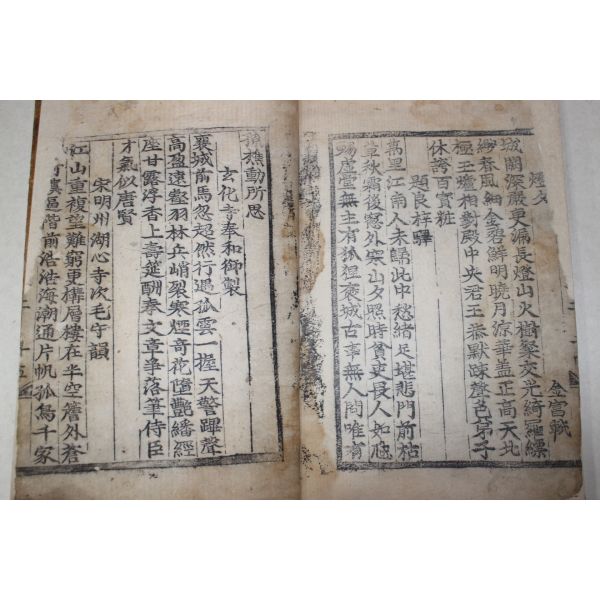 燈夕 金富軾
城闕深嚴更漏長燈山火樹粲交光綺羅縹
緲春風細金碧鮮明曉月涼華盖正高天北
極玉爐相對殿中央君王恭默疎聲色弟子
休誇百寶粧
題良梓驛
萬里江南人未歸此中愁緒足堪悲門前枯
秋霜後窓外寒山夕照時貧吏長人如
虛堂無主有狐狸襄城古事無人問唯有
機動所思
玄化寺奉和御製
襄城前馬忽超然行過孤雲一握天警蹕聲
高盈遠壑羽林兵峭裂寒煙奇花墮艶繙經
座甘露浮香上壽筵酬奉文章爭落筆侍臣
才氣似唐賢
宋明州湖心寺次毛守韻
江山重複望難窮更構層樓在半空簷外蒼
農邑階前浩浩海潮通片帆孤島千家